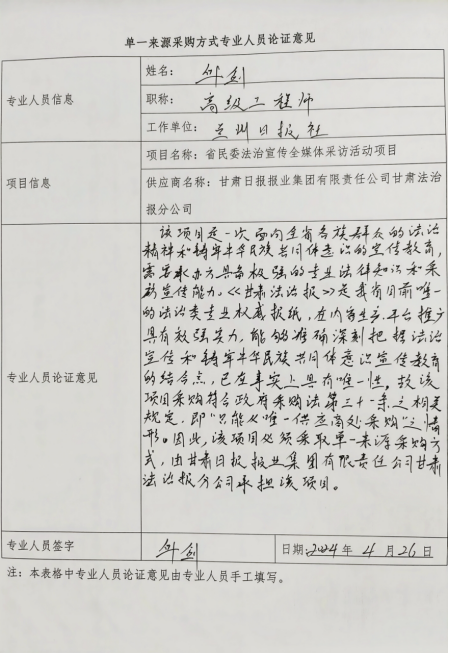 单一来源采购方式专业人员论证意见
专业人员信息
姓名：
职称：高级工程师
工作单位：兰州日报社
项目信息
项目名称：省民委法治宣传全媒体采访活动项目
供应商名称：甘肃日报报业集团有限责任公司甘肃法治
报分公司
专业人员论证意见
该项目是一次面向全省各族群众的法治
精神和铸牢中华民族共同体意识的宣传教育，
需要承办方具备极强的专业法律知识和采
编宣传能力。《甘肃法治报》是我省目前唯一
的法治类专业权威报纸，在内容生产、平台推广
具有较强实力，能够准确深刻把握法治
宣传和铸牢中华民族共同体意识宣传教育
的结合点，已在事实上具有唯一性。故该
项目采购符合政府采购法第三十一条之相关
规定，即“只能从唯一供应商处采购”之情
形。因此，该项目必须采取单一来源采购方
式，由甘肃日报报业集团有限责任公司甘肃
法治报分公司承担该项目。
专业人员签字
日期：2024年4月26日
注：本表格中专业人员论证意见由专业人员手工填写。